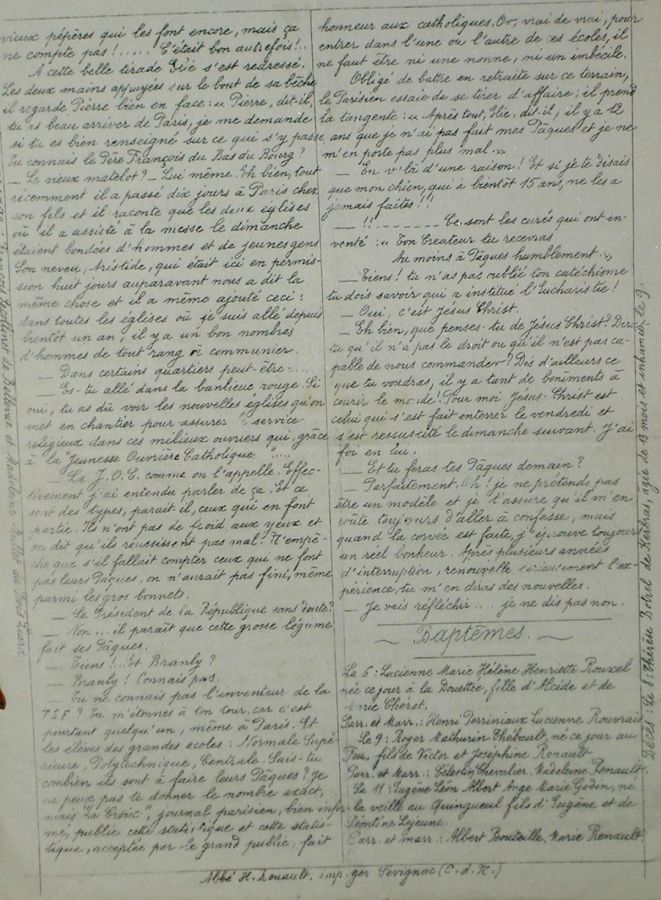 vieux pépères qui les font encore, mais ça
ne compte pas !..... C'était bon autrefois!..
A cette belle tirade s'est redressé.
Les deux mains appuyées sur le bout de sa bêche
il regarde Pierre bien en face: " Pierre, dit-il,
tu as beau arriver de Paris, je me demande
si tu es bien renseigné sur ce qui s'y passe
Tu connais le Père François du Bas du Bourg ?
— Le vieux matelot ? — Lui même. Eh bien, tout
récemment il a passé dix jours à Paris chez
son fils et il raconte que les deux églises
où il a assisté à la messe le dimanche
étaient bondées d'hommes et de jeunes gens
Son neveu, Aristide, qui était ici en permis-
sion huit jours auparavant nous a dit la
même chose et il a même ajouté ceci:
dans toutes les églises où je suis allé depuis
bientôt un an, il y a un bon nombres
d'hommes de tout rang à communier.
— Dans certains quartiers peut-être....
— Es-tu allé dans la banlieue rouge. Si
oui, tu as dû voir les nouvelles églises qu'on
met en chantier pour assurer service
religieux dans ces milieux ouvriers qui, grâce
à la "Jeunesse Ouvrière Catholique "....
— La J.O.C. comme on l'appelle. Effec-
tivement j'ai entendu parler de ça. Et ce
sont des types, paraît il, ceux qui en font
partie. Ils n'ont pas de froid aux yeux et
on dit qu'ils réussissent pas mal. N'empê-
che que s'il fallait compter ceux que ne font
pas leurs Pâques, on n'aurait pas fini, même
parmi les gros bonnets.
— Le Président de la République sans doute?
— Non... il paraît que cette grosse légume
fait ses Pâques.
— Tiens !... Et Branly ?
— Branly ! Connais pas.
— Tu ne connais pas l'inventeur de la
T S F ? Tu m'étonnes à ton tour, car c'est
pourtant quelqu'un, même à Paris. Et
les élèves des grandes écoles : Normale Supé-
rieure, Polytechnique, Centrale. Sais-tu
combien ils sont à faire leurs Pâques ? Je
ne peux pas te donner le nombre exact,
mais "La Croix", journal parisien, bien infor-
mé, publie cette statistique et cette statis-
tique, acceptée par le grand public, fait
honneur aux catholiques. Or, vrai de vrai, pour
entrer dans l'une où l'autre de ces écoles, il
ne faut être ni une nonne, ni un imbécile.
Obligé de battre en retraite sur ce terrain,
le Parisien essaie de se tirer d'affaire; il prend
la tangente: " Après tout, dit il, il y a 12
ans que je n'ai pas fait mes Pâques et je ne
m'en porte pas plus mal. "
— En v'là d'une raison ! Et si je te disais
que mon chien, qui a bientôt 15 ans, ne les a
jamais faites !!!
— !!........ Ce sont les curés qui ont in-
venté : " Ton Créateur tu recevras
Au moins à Pâques humblement. "
— Tiens ! tu n'as pas oublié ton catéchisme
tu dois savoir qui a institué l'Eucharistie !
— Oui, c'est Jésus Christ.
— Eh bien, que penses-tu de Jésus Christ? Diras
tu qu'il n'a pas le droit ou qu'il n'est pas ca-
pable de nous commander ? Dis d'ailleurs ce
que tu voudras, il y a tant de boniments à
courir le monde! Pour moi Jésus-Christ est
celui qui s'est fait enterrer le vendredi et
s'est ressuscité le dimanche suivant. J'ai
foi en lui.
— Et tu feras tes Pâques demain ?
— Parfaitement. Oh ! je ne prétends pas
être un modèle et je t'assure qu'il m'en
coûte toujours d'aller à confesse, mais
quand la corvée est faite, j'éprouve toujours
un réel bonheur. Après plusieurs années
d'interruption, renouvelle sérieusement l'ex-
périence, tu m'en diras des nouvelles.
— Je vais réfléchir.... je ne dis pas non.
Baptêmes.
Le 6 : Lucienne Marie Hélène Henriette Rouxel
née ce jour à la Douettée, fille d'Alcide et de
Marie Chérel.
Parr. et Marr. : Henri Derriniaux Lucienne Rouvrais
Le 9 : Roger Mathurin Thébault, né ce jour au
Feu, fils de Victor et Joséphine Renault
Parr. et Marr. : Célestin Chevalier, Madeleine Renault.
Le 11 : Eugène Léon Albert Ange Marie Godin, né
la veille au Quingueul fils d'Eugène et de
Léontine Lejeune.
Parr. et marr. : Albert Bouteille, Marie Renault
Abbé H. Douault. imp. ger Sévignac (C. d. N.)
Décès : Le 8 : Thérèse Botrel de Kerbras, agée de 13 mois et inhumée le 9.